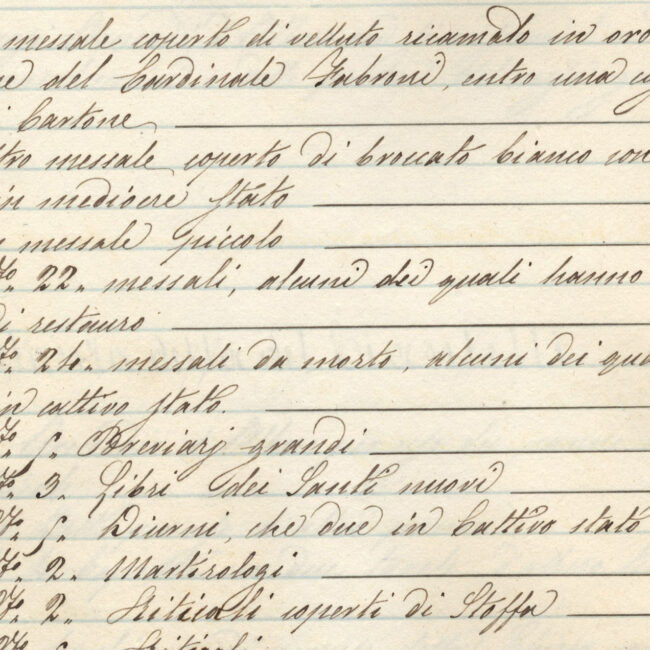 messale coperto di velluto ricamato in oro
del Cardinale Fabroni, entro una
Cartone
messale coperto di broccato bianco con
in mediocre stato
messale piccolo
N.o 22. messali, alcuni dei quali hanno
di restauro
N.o 24. messali da morto, alcuni dei qua
in cattivo stato.
N.o 5. Breviarj grandi
N.o 3. Libri dei Santi nuovi
N.o 5. Diurni, che due in Cattivo stato
N.o 2. Martirologi
N.o 2. Rituali coperti di Stoffa
Rituali